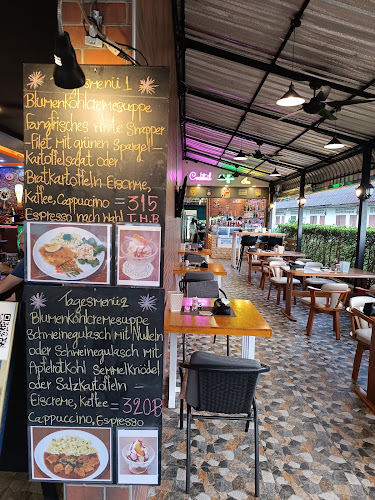 Tagesmenü 1
Blumenkohlcremesuppe
Fangfrisches White Snapper
Filet mit grünen Spargel-
Kartoffelsalat oder
Bratkartoffeln Eiscreme,
Kaffee, Cappuccino = 315
Espresso nach Wahl T.H.B
Tagesmenü 2
Blumenkohlcremesuppe
Schweinegulasch mit Nudeln
oder Schweinegulasch mit
Apfelrotkohl Semmelknödel
oder Salzkartoffeln -
Eiscreme, Kaffee = 320B
Cappuccino, Espresso